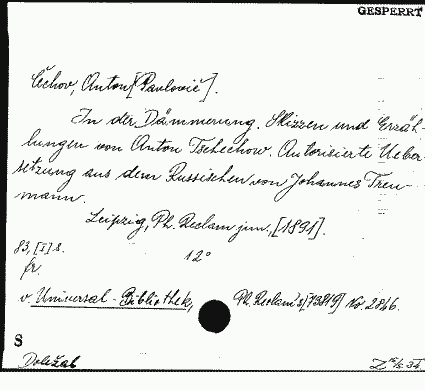 GESPERRT
Čechov, Anton [Pavlovič].
In der Dämmerung. Skizzen und Erzäh-
lungen von Anton Tschechow. Autorisierte Ueber-
setzung aus dem Russischen von Johannes Treu-
mann.
Leipzig, Ph. Reclam jun., [1891].
83, [1] s. 12°
fr.
v. Universal-Bibliothek, Ph. Reclam's [73819] No. 2846.
S
Doležal